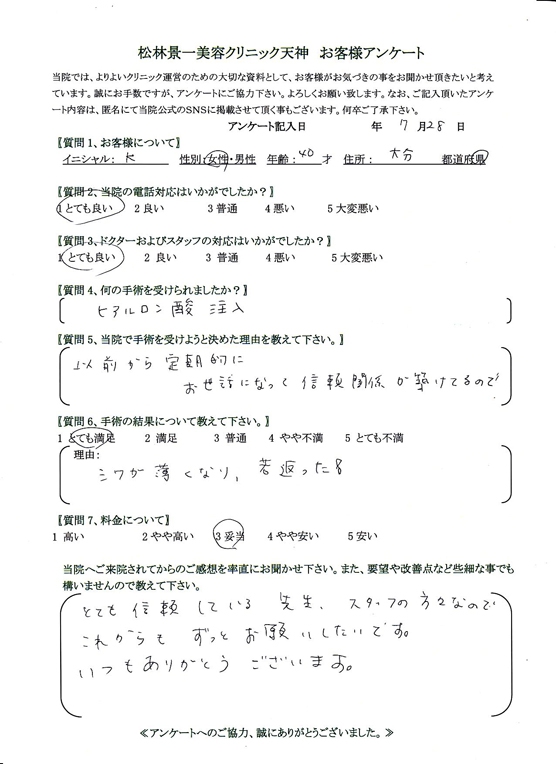 松林景一美容クリニック天神　お客様アンケート
当院では、よりよいクリニック運営のための大切な資料として、お客様がお気づきの事をお聞かせ頂きたいと考え
ています。誠にお手数ですが、アンケートにご協力下さい。よろしくお願い致します。なお、ご記入頂いたアンケ
ート内容は、匿名にて当院公式のSNSに掲載させて頂く事もございます。何卒ご了承下さい。
アンケート記入日　　年　7　月28　日
〖質問1、お客様について〗
イニシャル：　K　性別：女性・男性　年齢：40　才　住所：　大分　都道府県
〖質問2、当院の電話対応はいかがでしたか？〗
1 とても良い　2 良い　3 普通　4 悪い　5 大変悪い
〖質問3、ドクターおよびスタッフの対応はいかがでしたか？〗
1 とても良い　2 良い　3 普通　4 悪い　5 大変悪い
〖質問4、何の手術を受けられましたか？〗
ヒアルロン酸　注入
〖質問5、当院で手術を受けようと決めた理由を教えて下さい。〗
以前から定期的に
お世話になって信頼関係が築けてるので
〖質問6、手術の結果について教えて下さい。〗
1 とても満足　2 満足　3 普通　4 やや不満　5 とても不満
理由：
シワが薄くなり、若返った
〖質問7、料金について〗
1 高い　2 やや高い　3 妥当　4 やや安い　5 安い
当院へご来院されてからのご感想を率直にお聞かせ下さい。また、要望や改善点など些細な事でも
構いませんので教えて下さい。
とても信頼している先生、スタッフの方々なので
これからもずっとお願いしたいです。
いつもありがとうございます。
≪アンケートへのご協力、誠にありがとうございました。≫